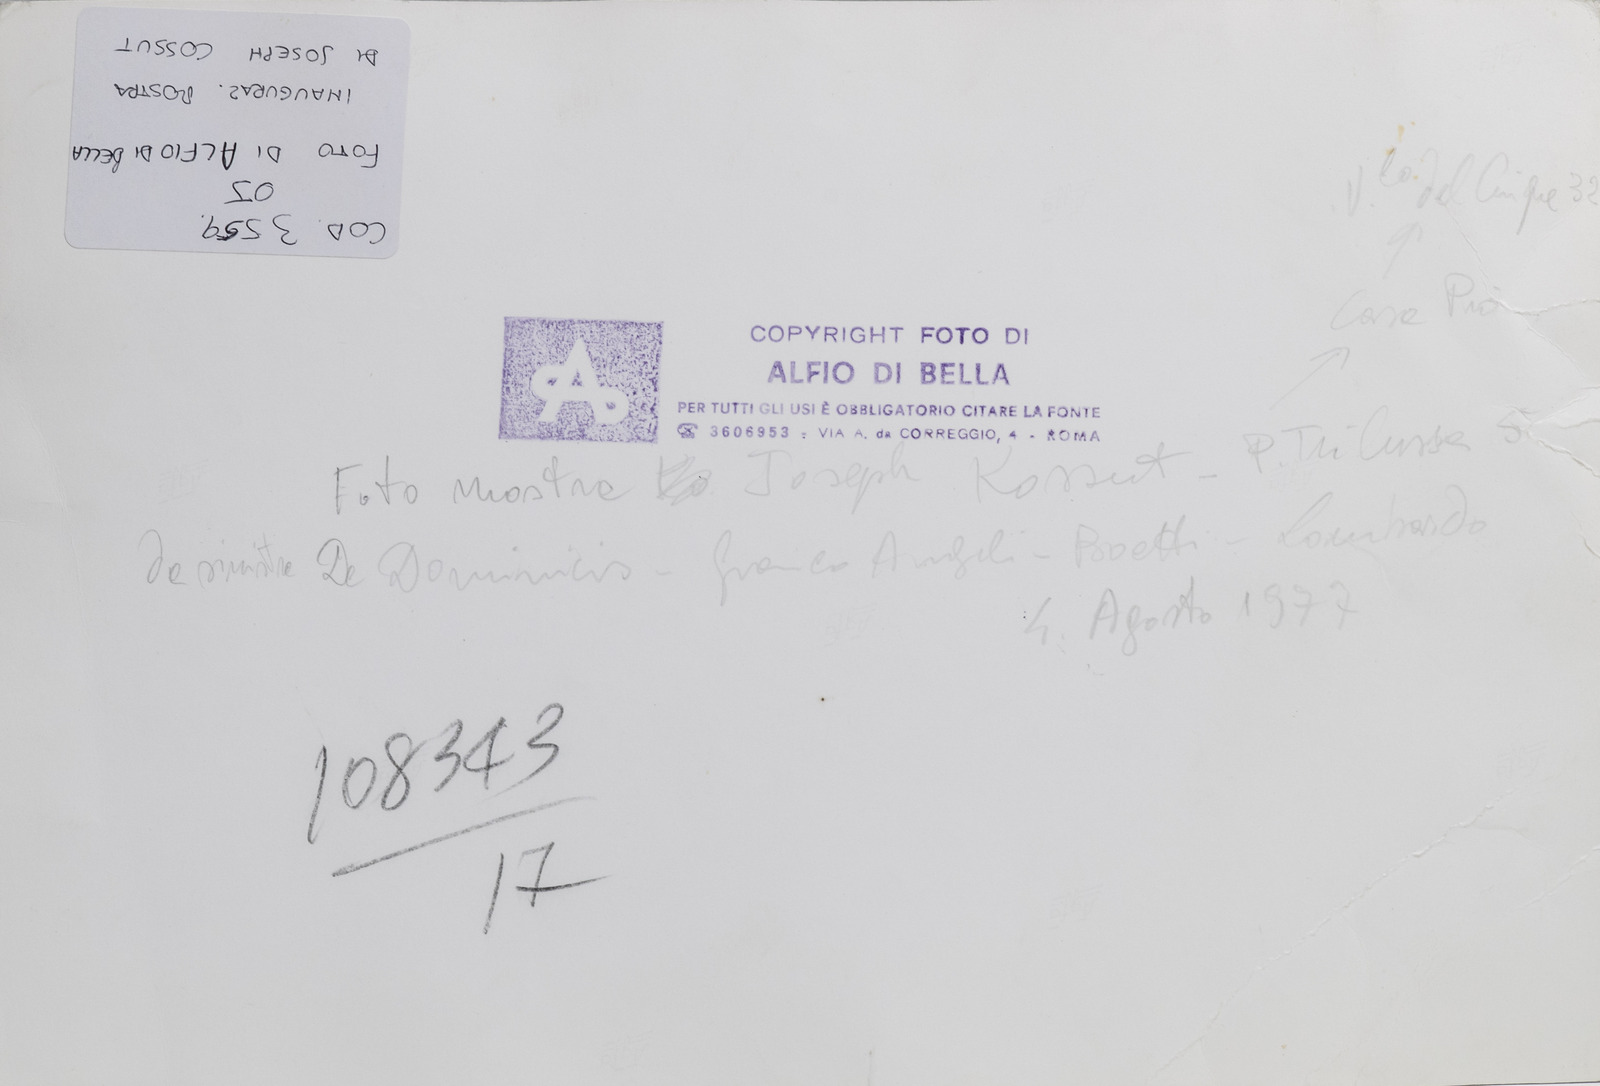 COD. 3559.
05
FOTO DI ALFIO DI BELLA
INAUGURAZ. MOSTRA
DI JOSEPH COSSUT
V.lo del Cinque 32
Casa
COPYRIGHT FOTO DI
ALFIO DI BELLA
PER TUTTI GLI USI È OBBLIGATORIO CITARE LA FONTE
☎ 3606953 - VIA A. da CORREGGIO, 4 - ROMA
Foto mostra Joseph Kossut - P. Trilussa
da sinistra De Dominicis - Franco Angeli - Boetti - Lombardo
4. Agosto 1977
108343
17